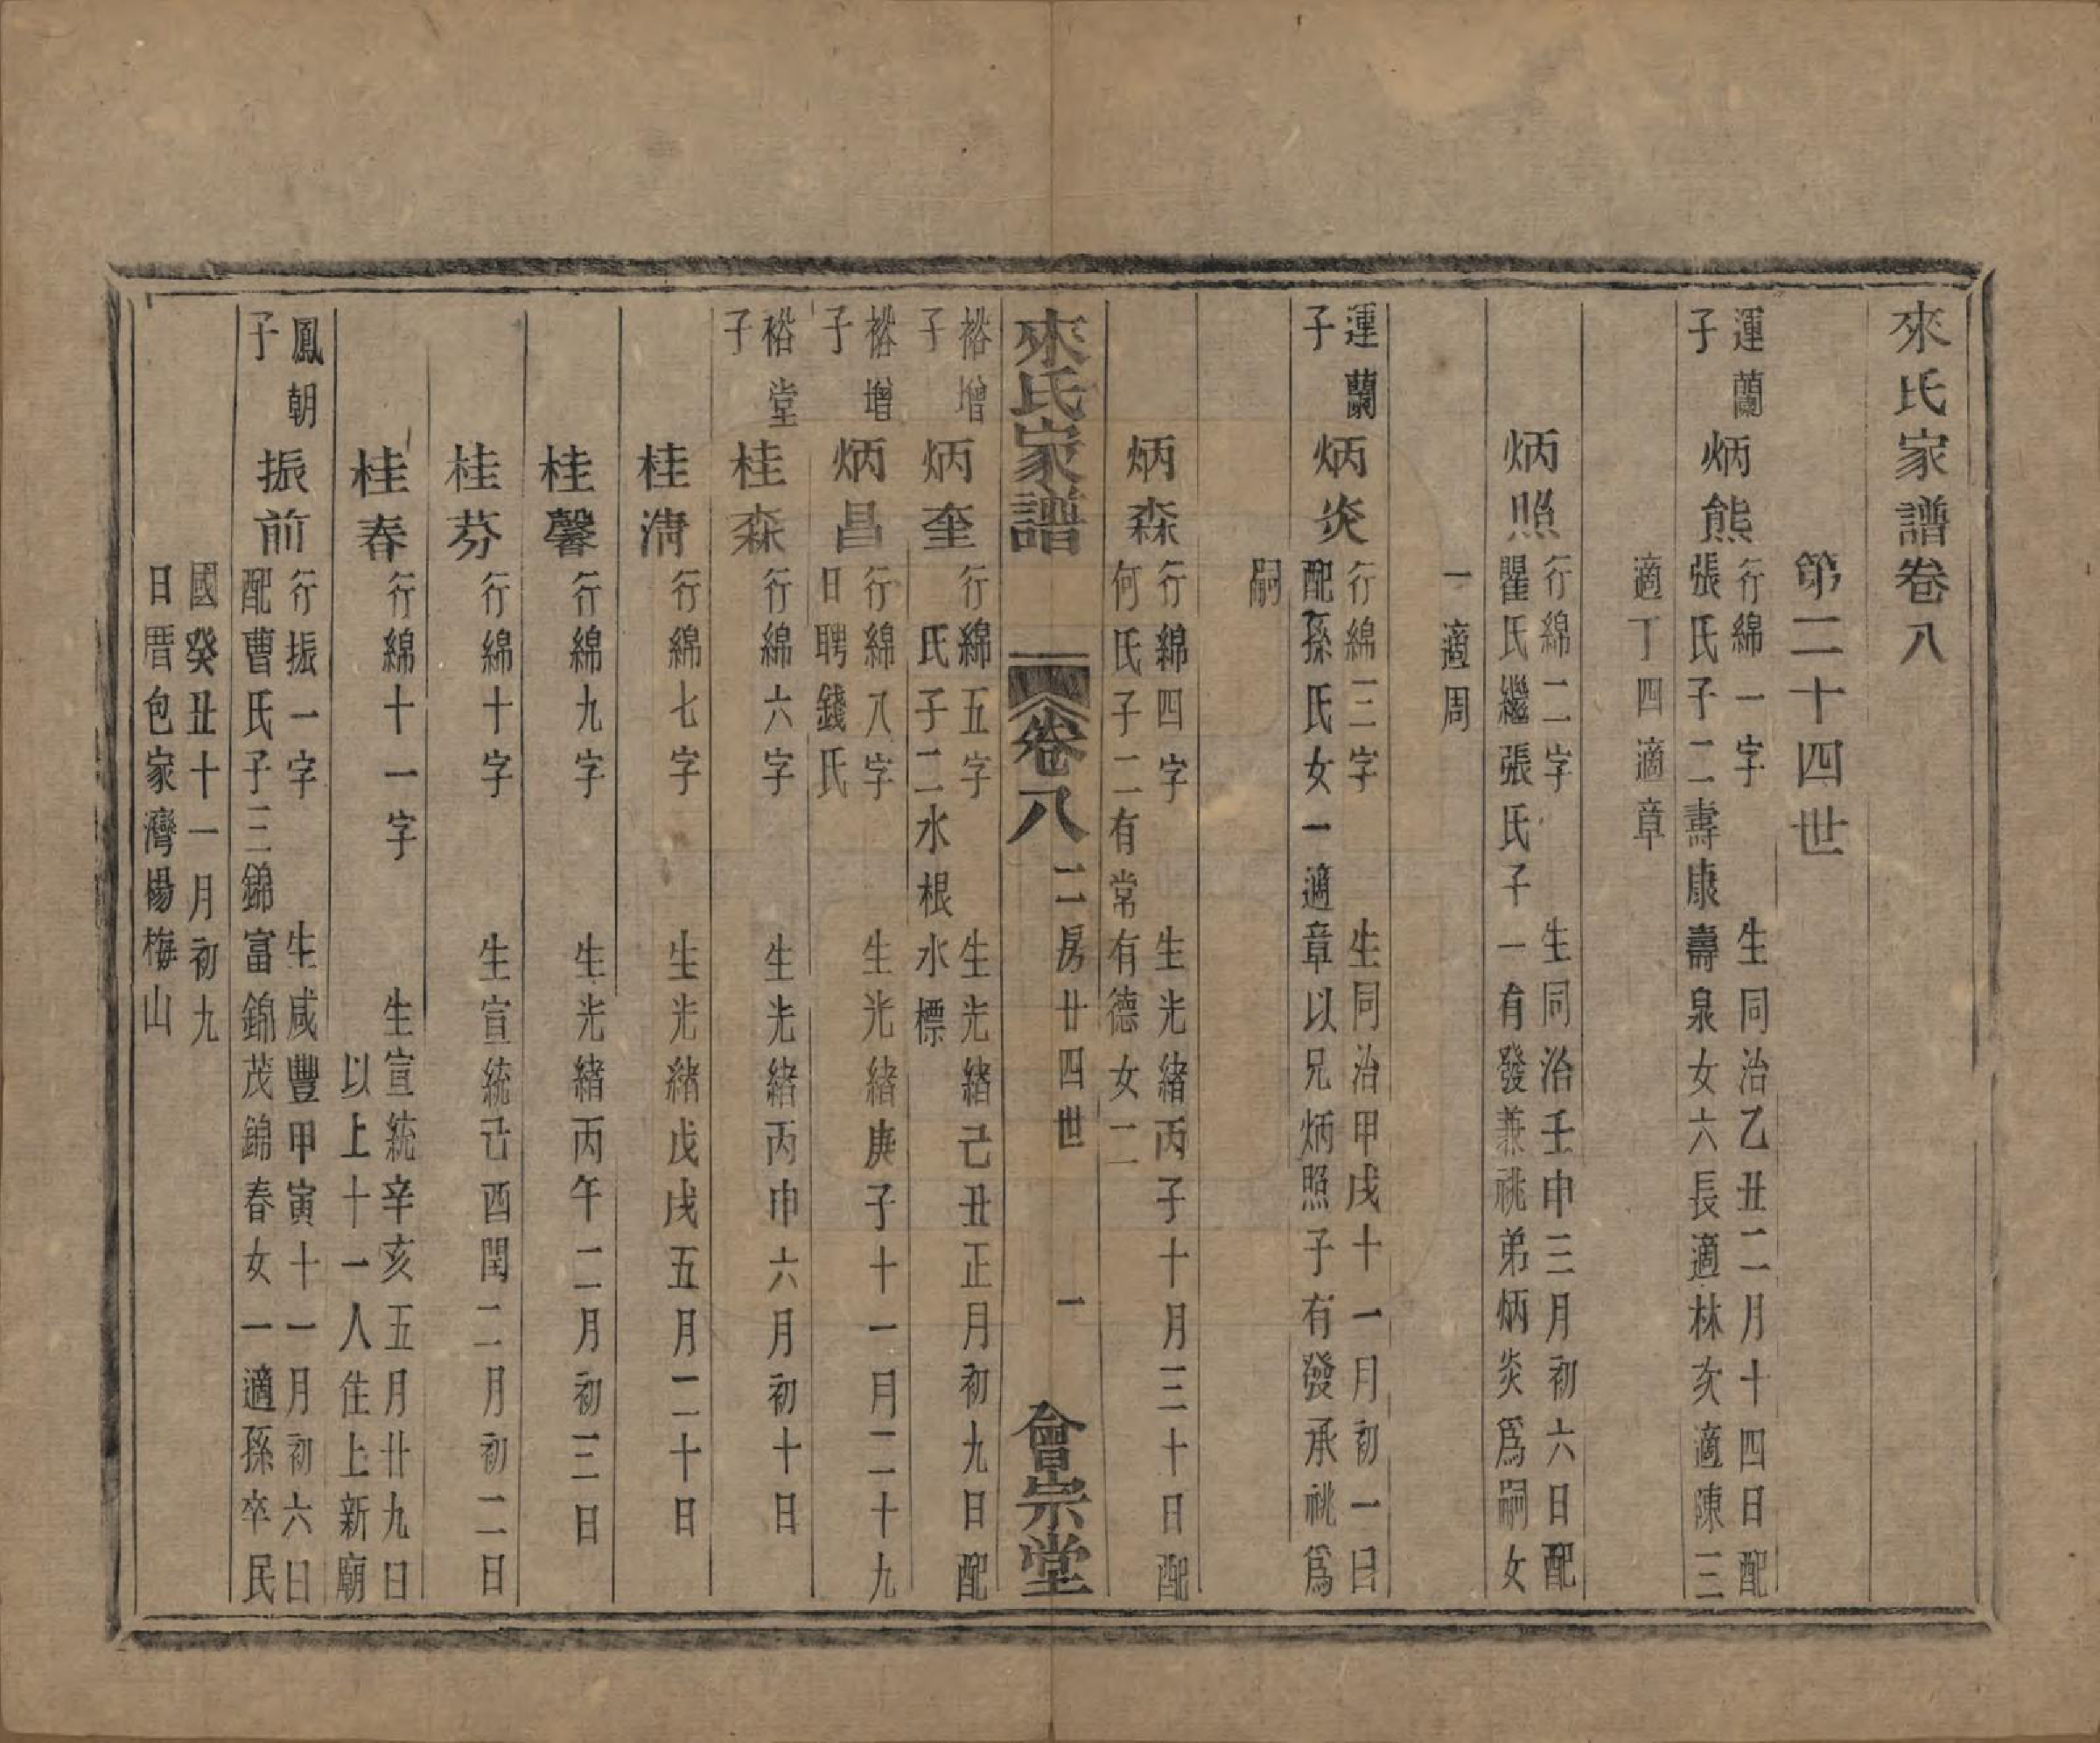 來氏家譜卷八
第二十四世
運蘭子
炳熊
行綿一字 生同治乙丑二月十四日配
張氏子二壽康壽泉女六長適林次適陳三
適丁四適章
炳照
行綿二字 生同治壬申三月初六日配
瞿氏繼張氏子一有發兼祧弟炳炎爲嗣女
一適周
運蘭子
炳炎
行綿三字 生同治甲戌十一月初一日
配孫氏女一適章以兄炳照子有發承祧爲
嗣
炳森
行綿四字 生光緒丙子十月三十日配
何氏子二有常有德女二
來氏家譜 卷八 二房廿四世 一 會宗堂
裕增子
炳奎
行綿五字 生光緒己丑正月初九日配
氏子二水根水標
裕增子
炳昌
行綿八字 生光緒庚子十一月二十九
日聘錢氏
裕堂子
桂森
行綿六字 生光緒丙申六月初十日
桂淸
行綿七字 生光緒戊戌五月二十日
桂馨
行綿九字 生光緒丙午二月初三日
桂芬
行綿十字 生宣統己酉閏二月初二日
桂春
行綿十一字 生宣統辛亥五月廿九日
以上十一人住上新廟
鳳朝子
振前
行振一字 生咸豐甲寅十一月初六日
配曹氏子三錦富錦茂錦春女一適孫卒民
國癸丑十一月初九
日厝包家灣楊梅山